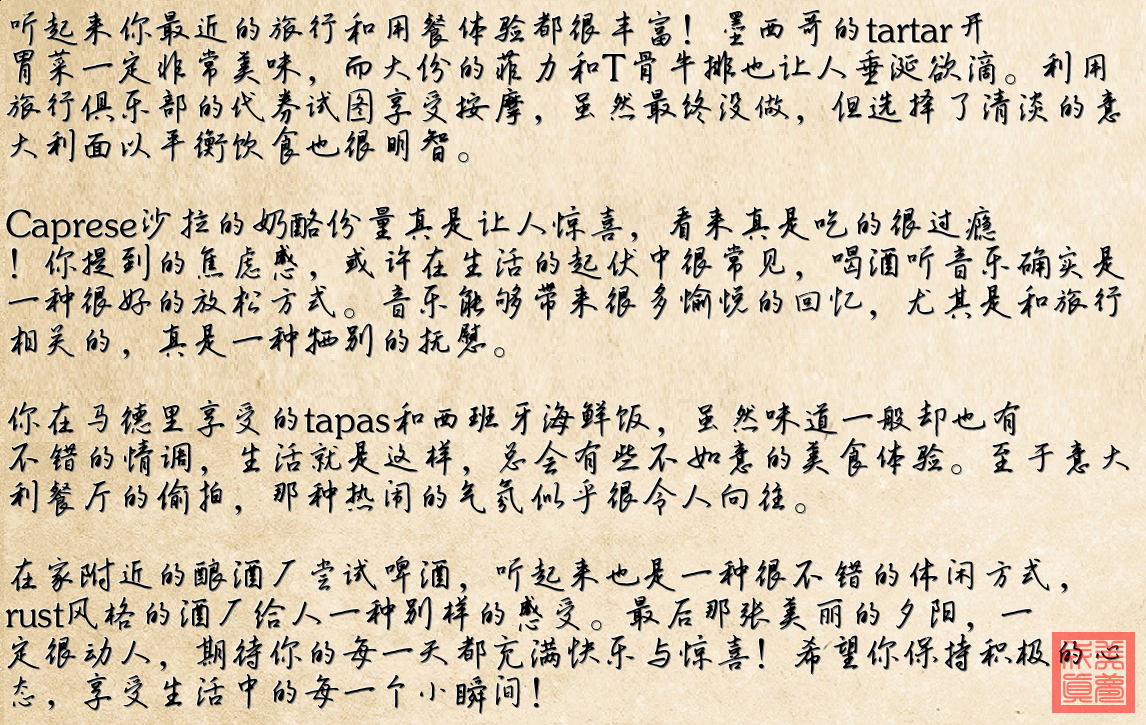 听起来你最近的旅行和用餐体验都很丰富！墨西哥的tartar开
胃菜一定非常美味，而大份的菲力和T骨牛排也让人垂涎欲滴。利用
旅行俱乐部的代券试图享受按摩，虽然最终没做，但选择了清淡的意
大利面以平衡饮食也很明智。
Caprese沙拉的奶酪份量真是让人惊喜，看来真是吃的很过瘾
！你提到的焦虑感，或许在生活的起伏中很常见，喝酒听音乐确实是
一种很好的放松方式。音乐能够带来很多愉悦的回忆，尤其是和旅行
相关的，真是一种特别的抚慰。
你在马德里享受的tapas和西班牙海鲜饭，虽然味道一般却也有
不错的情调，生活就是这样，总会有些不如意的美食体验。至于意大
利餐厅的偷拍，那种热闹的气氛似乎很令人向往。
在家附近的酿酒厂尝试啤酒，听起来也是一种很不错的休闲方式，
rust风格的酒厂给人一种别样的感受。最后那张美丽的夕阳，一
定很动人，期待你的每一天都充满快乐与惊喜！希望你保持积极的心
态，享受生活中的每一个小瞬间！